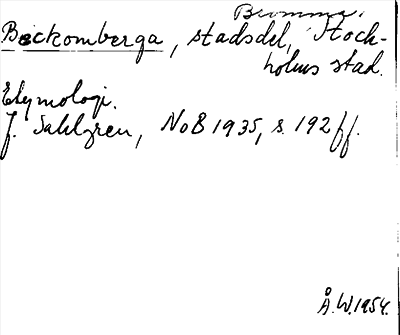 Bromma.
Beckomberga, stadsdel, Stock-
holms stad.
Etymologi.
J. Sahlgren, NoB 1935, s. 192 ff.
Å.W. 1954.